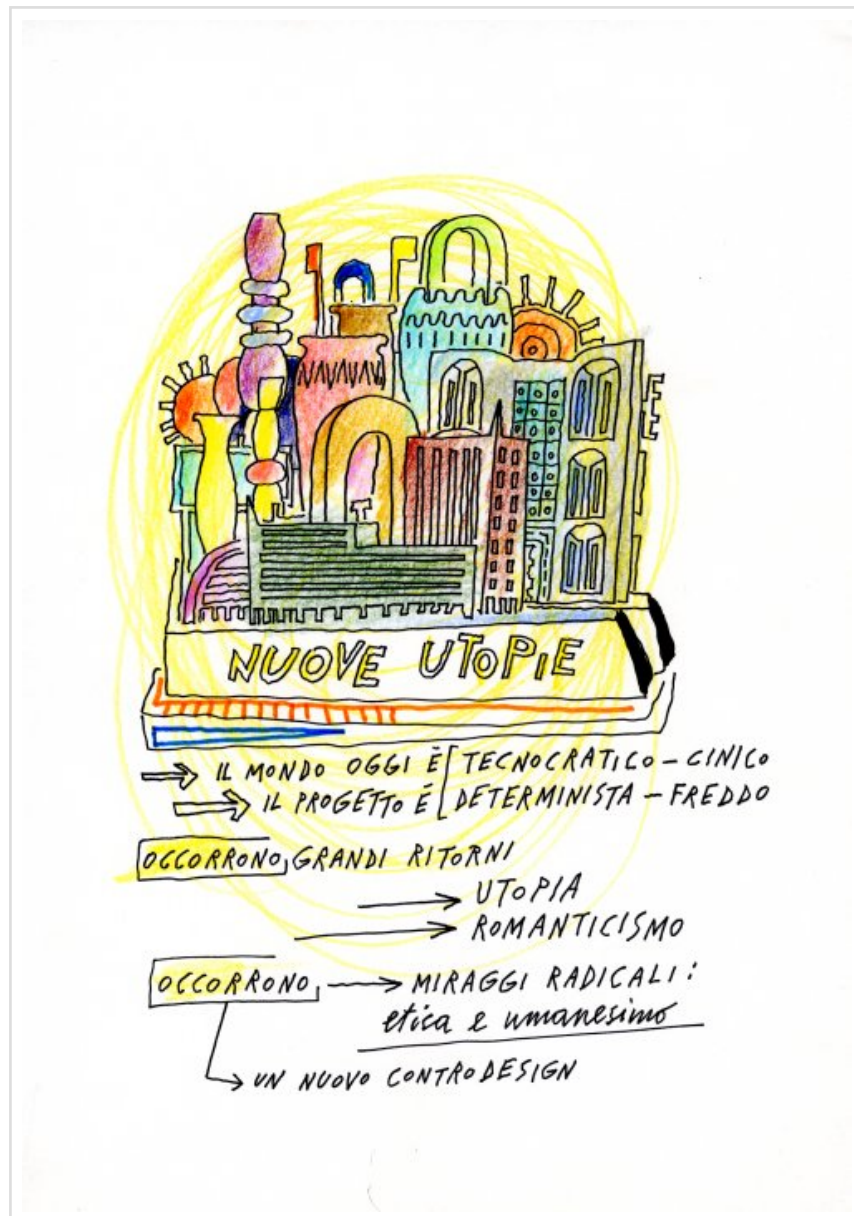 NUOVE UTOPIE
IL MONDO OGGI È TECNOCRATICO - CINICO
IL PROGETTO É DETERMINISTA - FREDDO
OCCORRONO GRANDI RITORNI
UTOPIA
ROMANTICISMO
OCCORRONO MIRAGGI RADICALI:
etica e umanesimo
UN NUOVO CONTRODESIGN